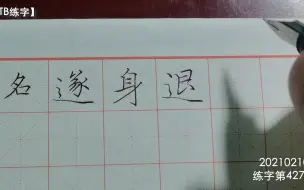 TB练字】
名遂身退
20210210
练字第427